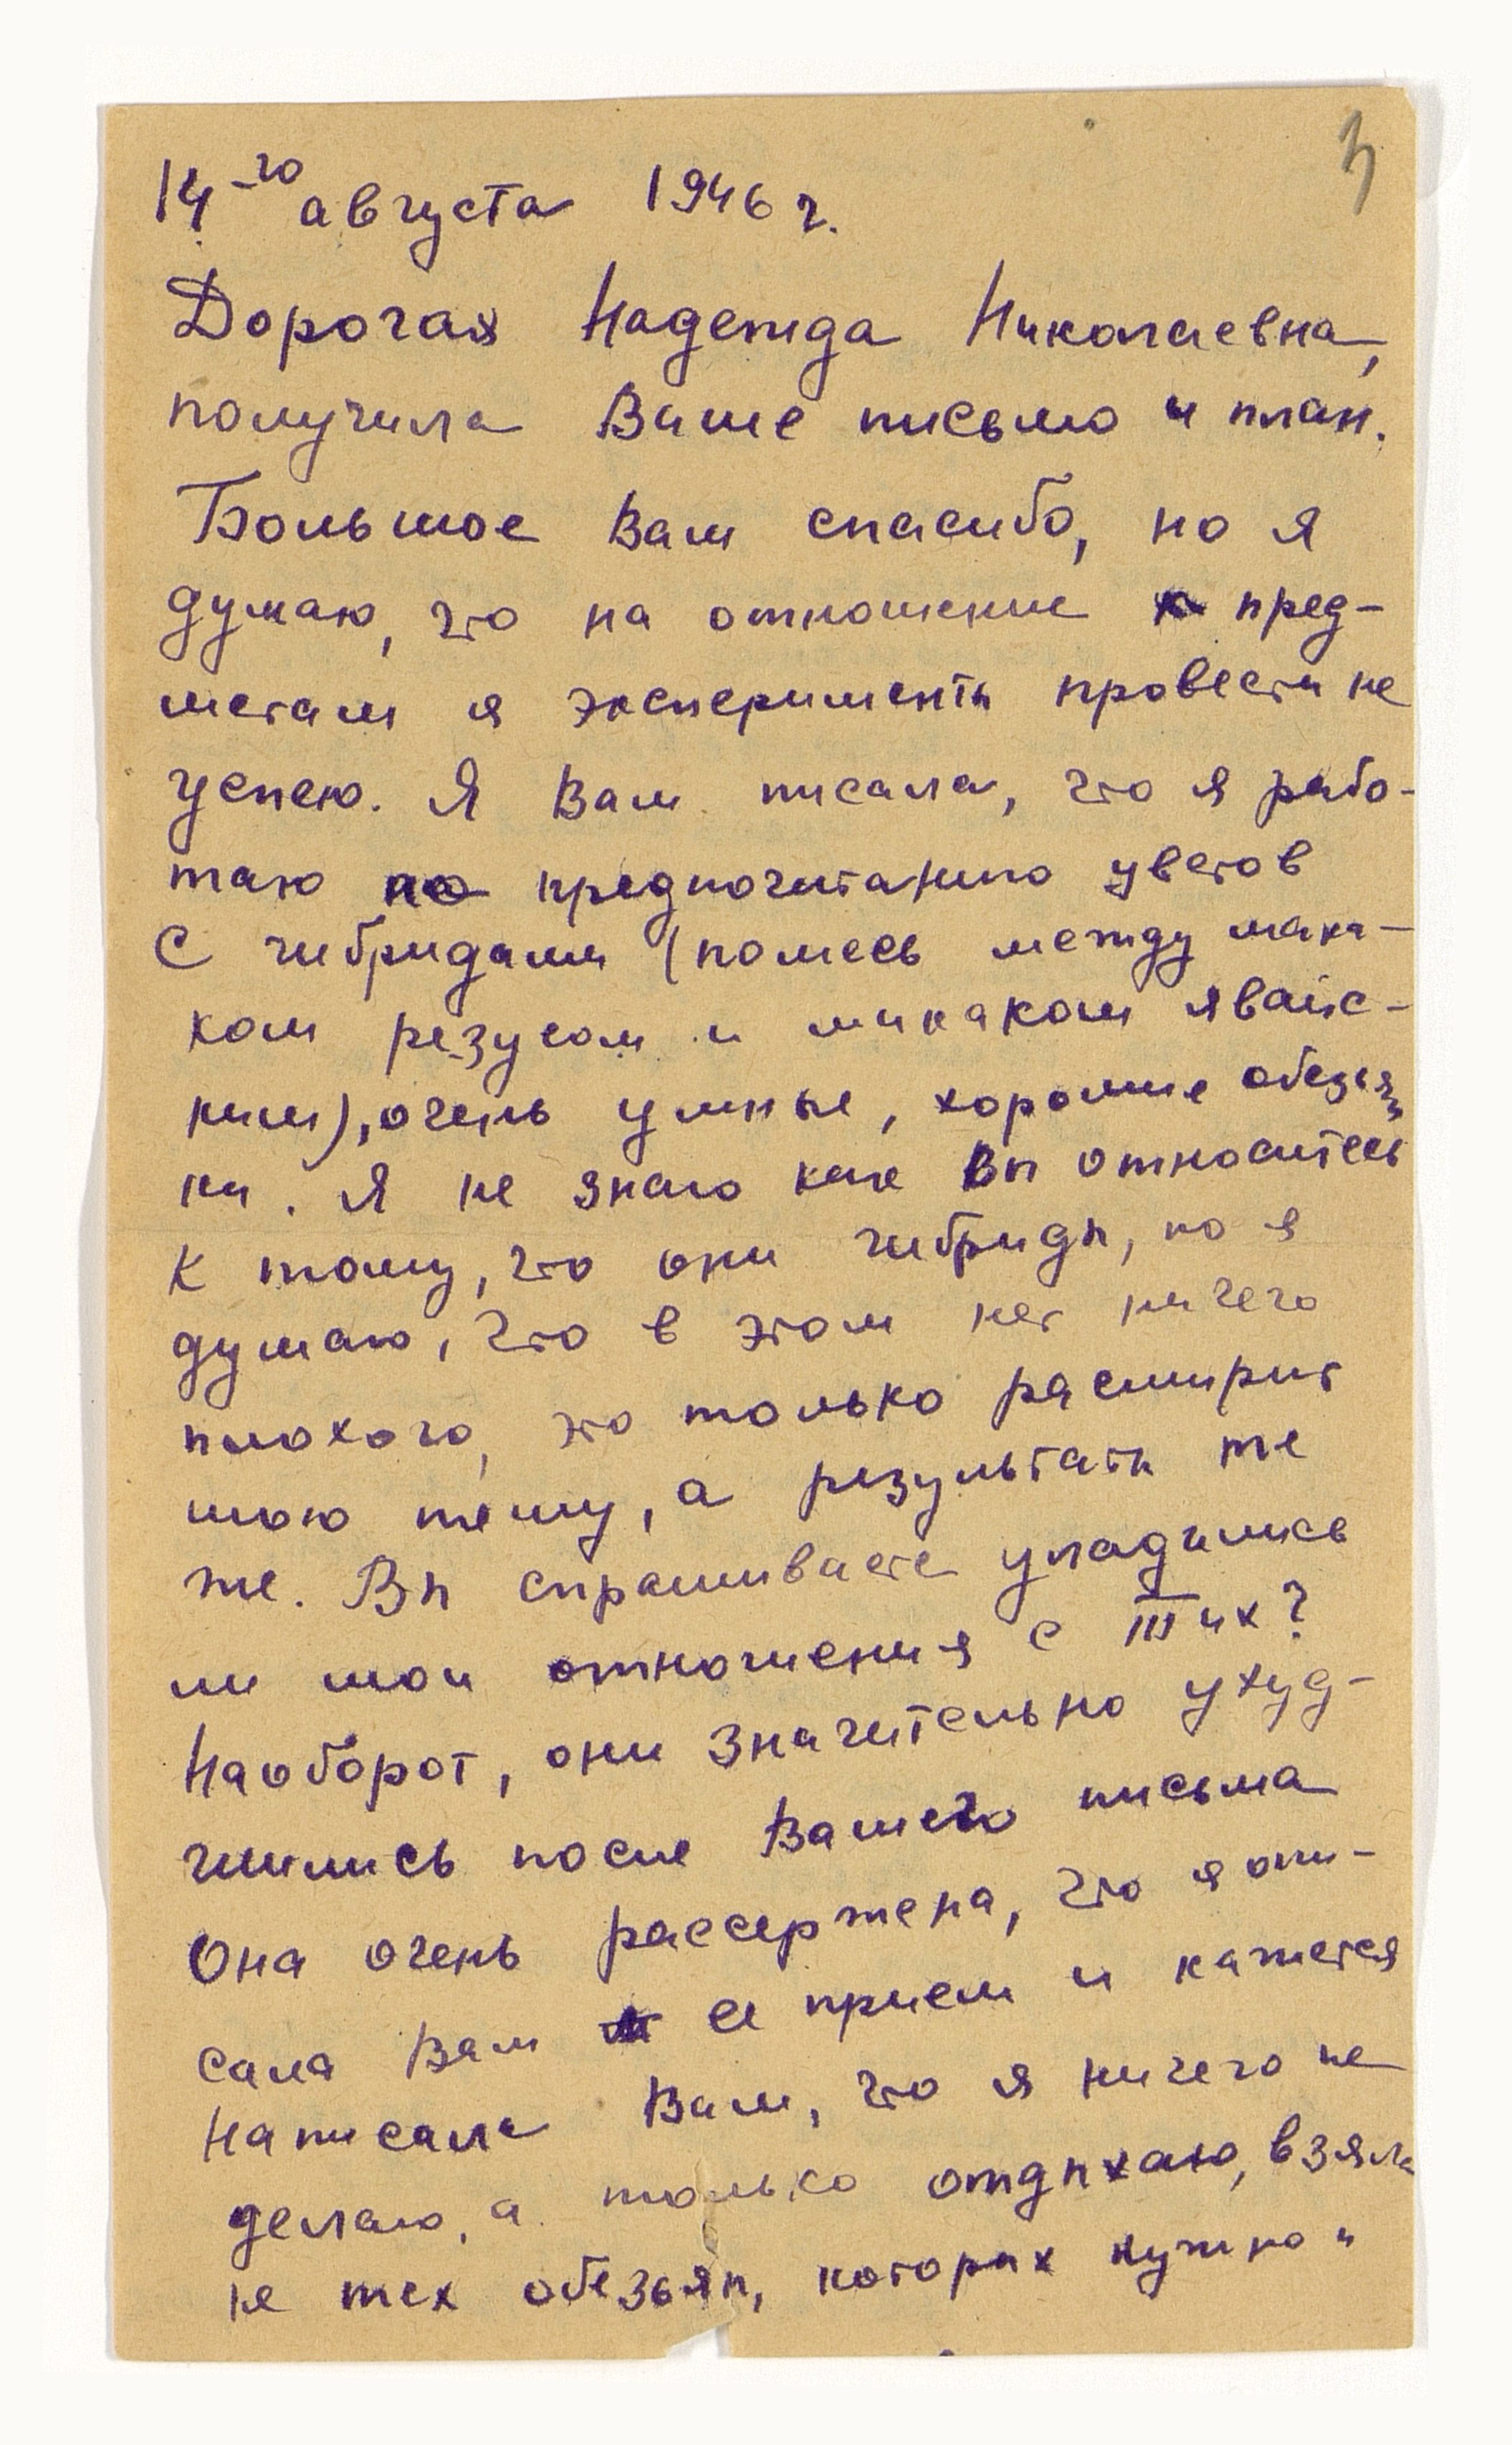 3
14-го августа 1946 г.
Дорогая Надежда Николаевна,
получила Ваше письмо и план.
Большое Вам спасибо, но я
думаю, что на отношение к пред-
метам я эксперименты провести не
успею. Я Вам писала, что я рабо-
таю по предпочитанию цветов
с гибридами (помесь между мака-
ком резусом и макаком явайс-
ким), очень умные, хорошие обезьян
ки. Я не знаю как Вы относитесь
к тому, что они гибриды, но я
думаю, что в этом нет ничего
плохого, это только расширит
мою тему, а результаты те
же. Вы спрашиваете уладились
ли мои отношения с Тих?
Наоборот, они значительно ухуд-
шились после Вашего письма
Она очень рассержена, что я опи-
сала Вам ее прием и кажется
написала Вам, что я ничего не
делаю, а только отдыхаю, взяла
не тех обезьян, которых нужно и